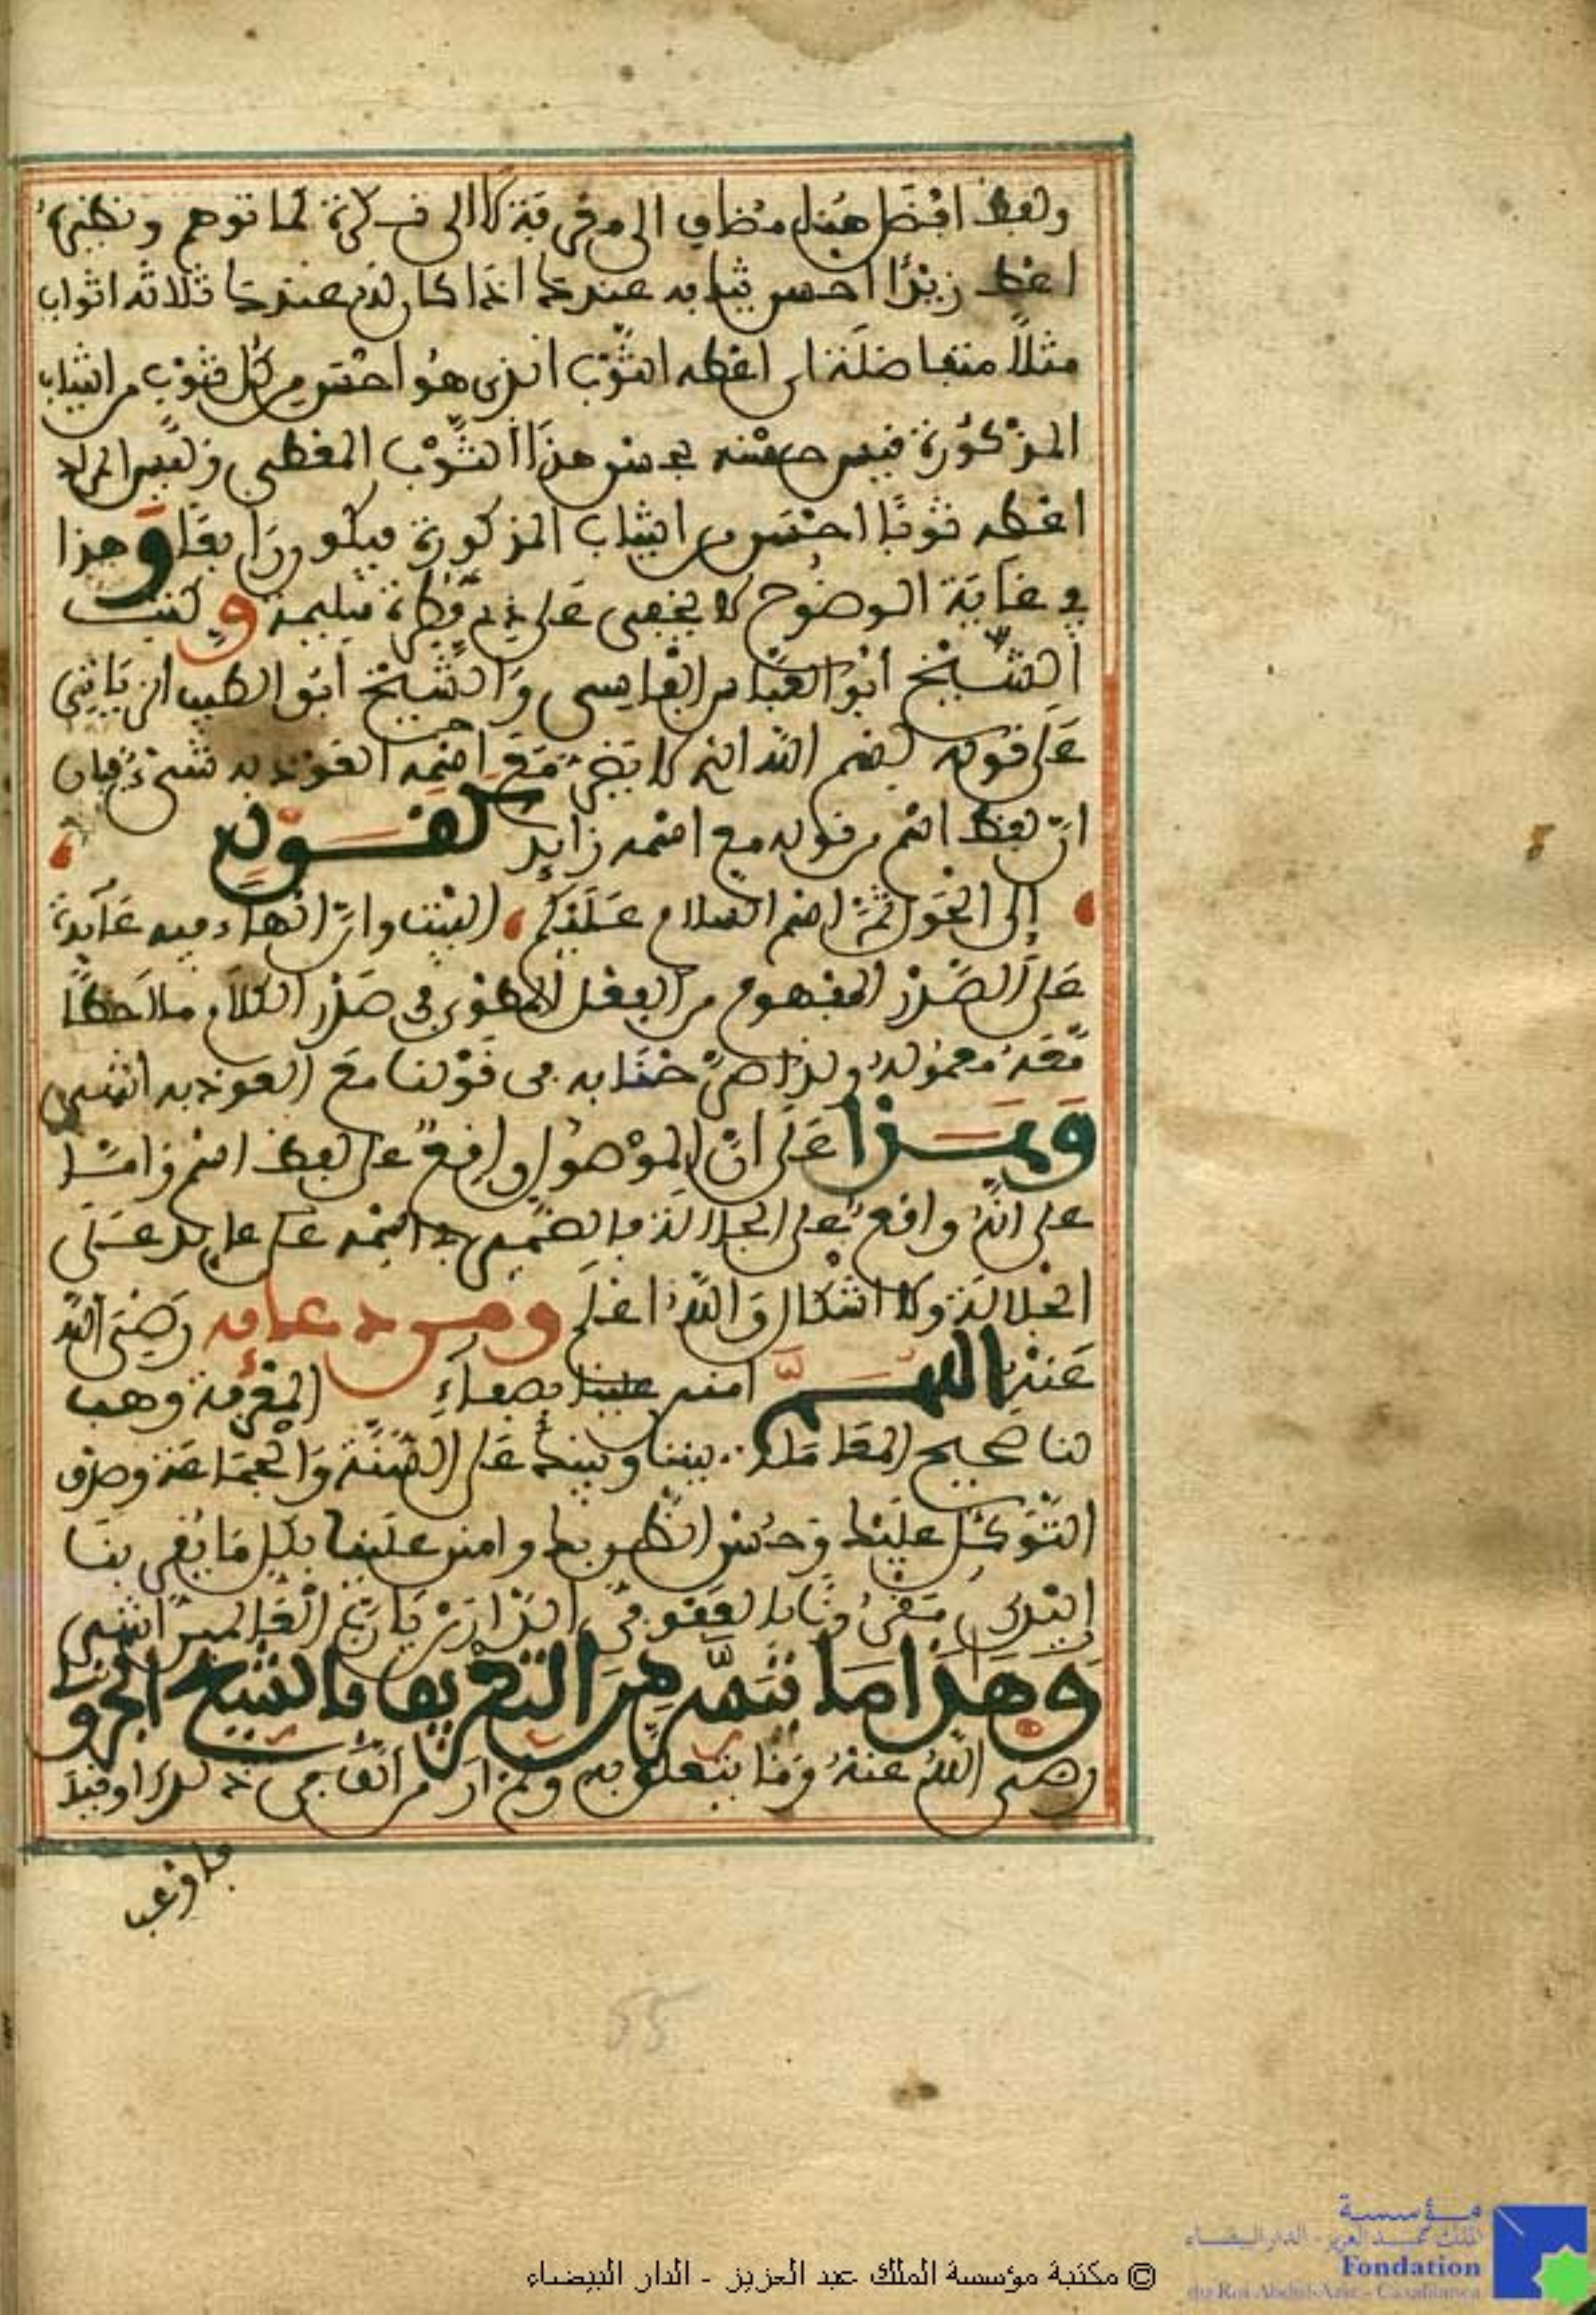 ولفظ افضل هنا مضاف الى معرفة لا الى نكرة لما توهم ونظيره
اعط زيدًا احسن ثيابه عندك اذا كان له عندك ثلاثة اثواب
مثلًا متفاضلة اي اعطه الثوب الذي هو احسن من كل ثوب من الثياب
المذكورة فيس حسنه بحسن هذا الثوب المعطى وليس المراد
اعطه ثوبًا احسن من الثياب المذكورة فيكون زايدا وهذا
في غاية الوضوح لا يخفى على ذي فطرة سليمة وكتب
الشيخ أبو العباس الفاسي والشيخ أبو الطيب الزياتي
على قوله بسم الله الذي لا يضر مع اسمه العوذ به شيء فان
ان لفظ اسم من قوله مع اسمه زايد كقوله
إلى الحول ثم اسم السلام عليكما البيت وان الهاء فيه عايدة
على المصدر المفهوم من الفعل المطوي في صدر الكلام ملاحظًا
معه معموله ولذا صرّحنا به في قولنا مع العوذ به انتهى
وهذا على ان الموصول واقع على لفظ اسم واما
على انه واقع على الجلالة فالضمير في اسمه عايد على
الجلالة ولا اشكال والله اعلم ومن دعايه رضي الله
عنه اللهم امنن علينا بصفاء المعرفة وهب
لنا صحيح المعاملة بيننا وبينك على السنة والجماعة وصدق
التوكل عليك وحسن الظن بك وامنن علينا بكل ما يقربنا
اليك مقرونًا بالعفو في الدارين يا رب العالمين انتهى
وهذا ما تيسر من التعريف بالشيخ الجزولي
رضي الله عنه وما يتعلق به ومن اراد
بلوغ
55
© مكتبة مؤسسة الملك عبد العزيز - الدار البيضاء
مؤسسة
الملك عبد العزيز - الدار البيضاء
Fondation
du Roi Abdul-Aziz - Casablanca